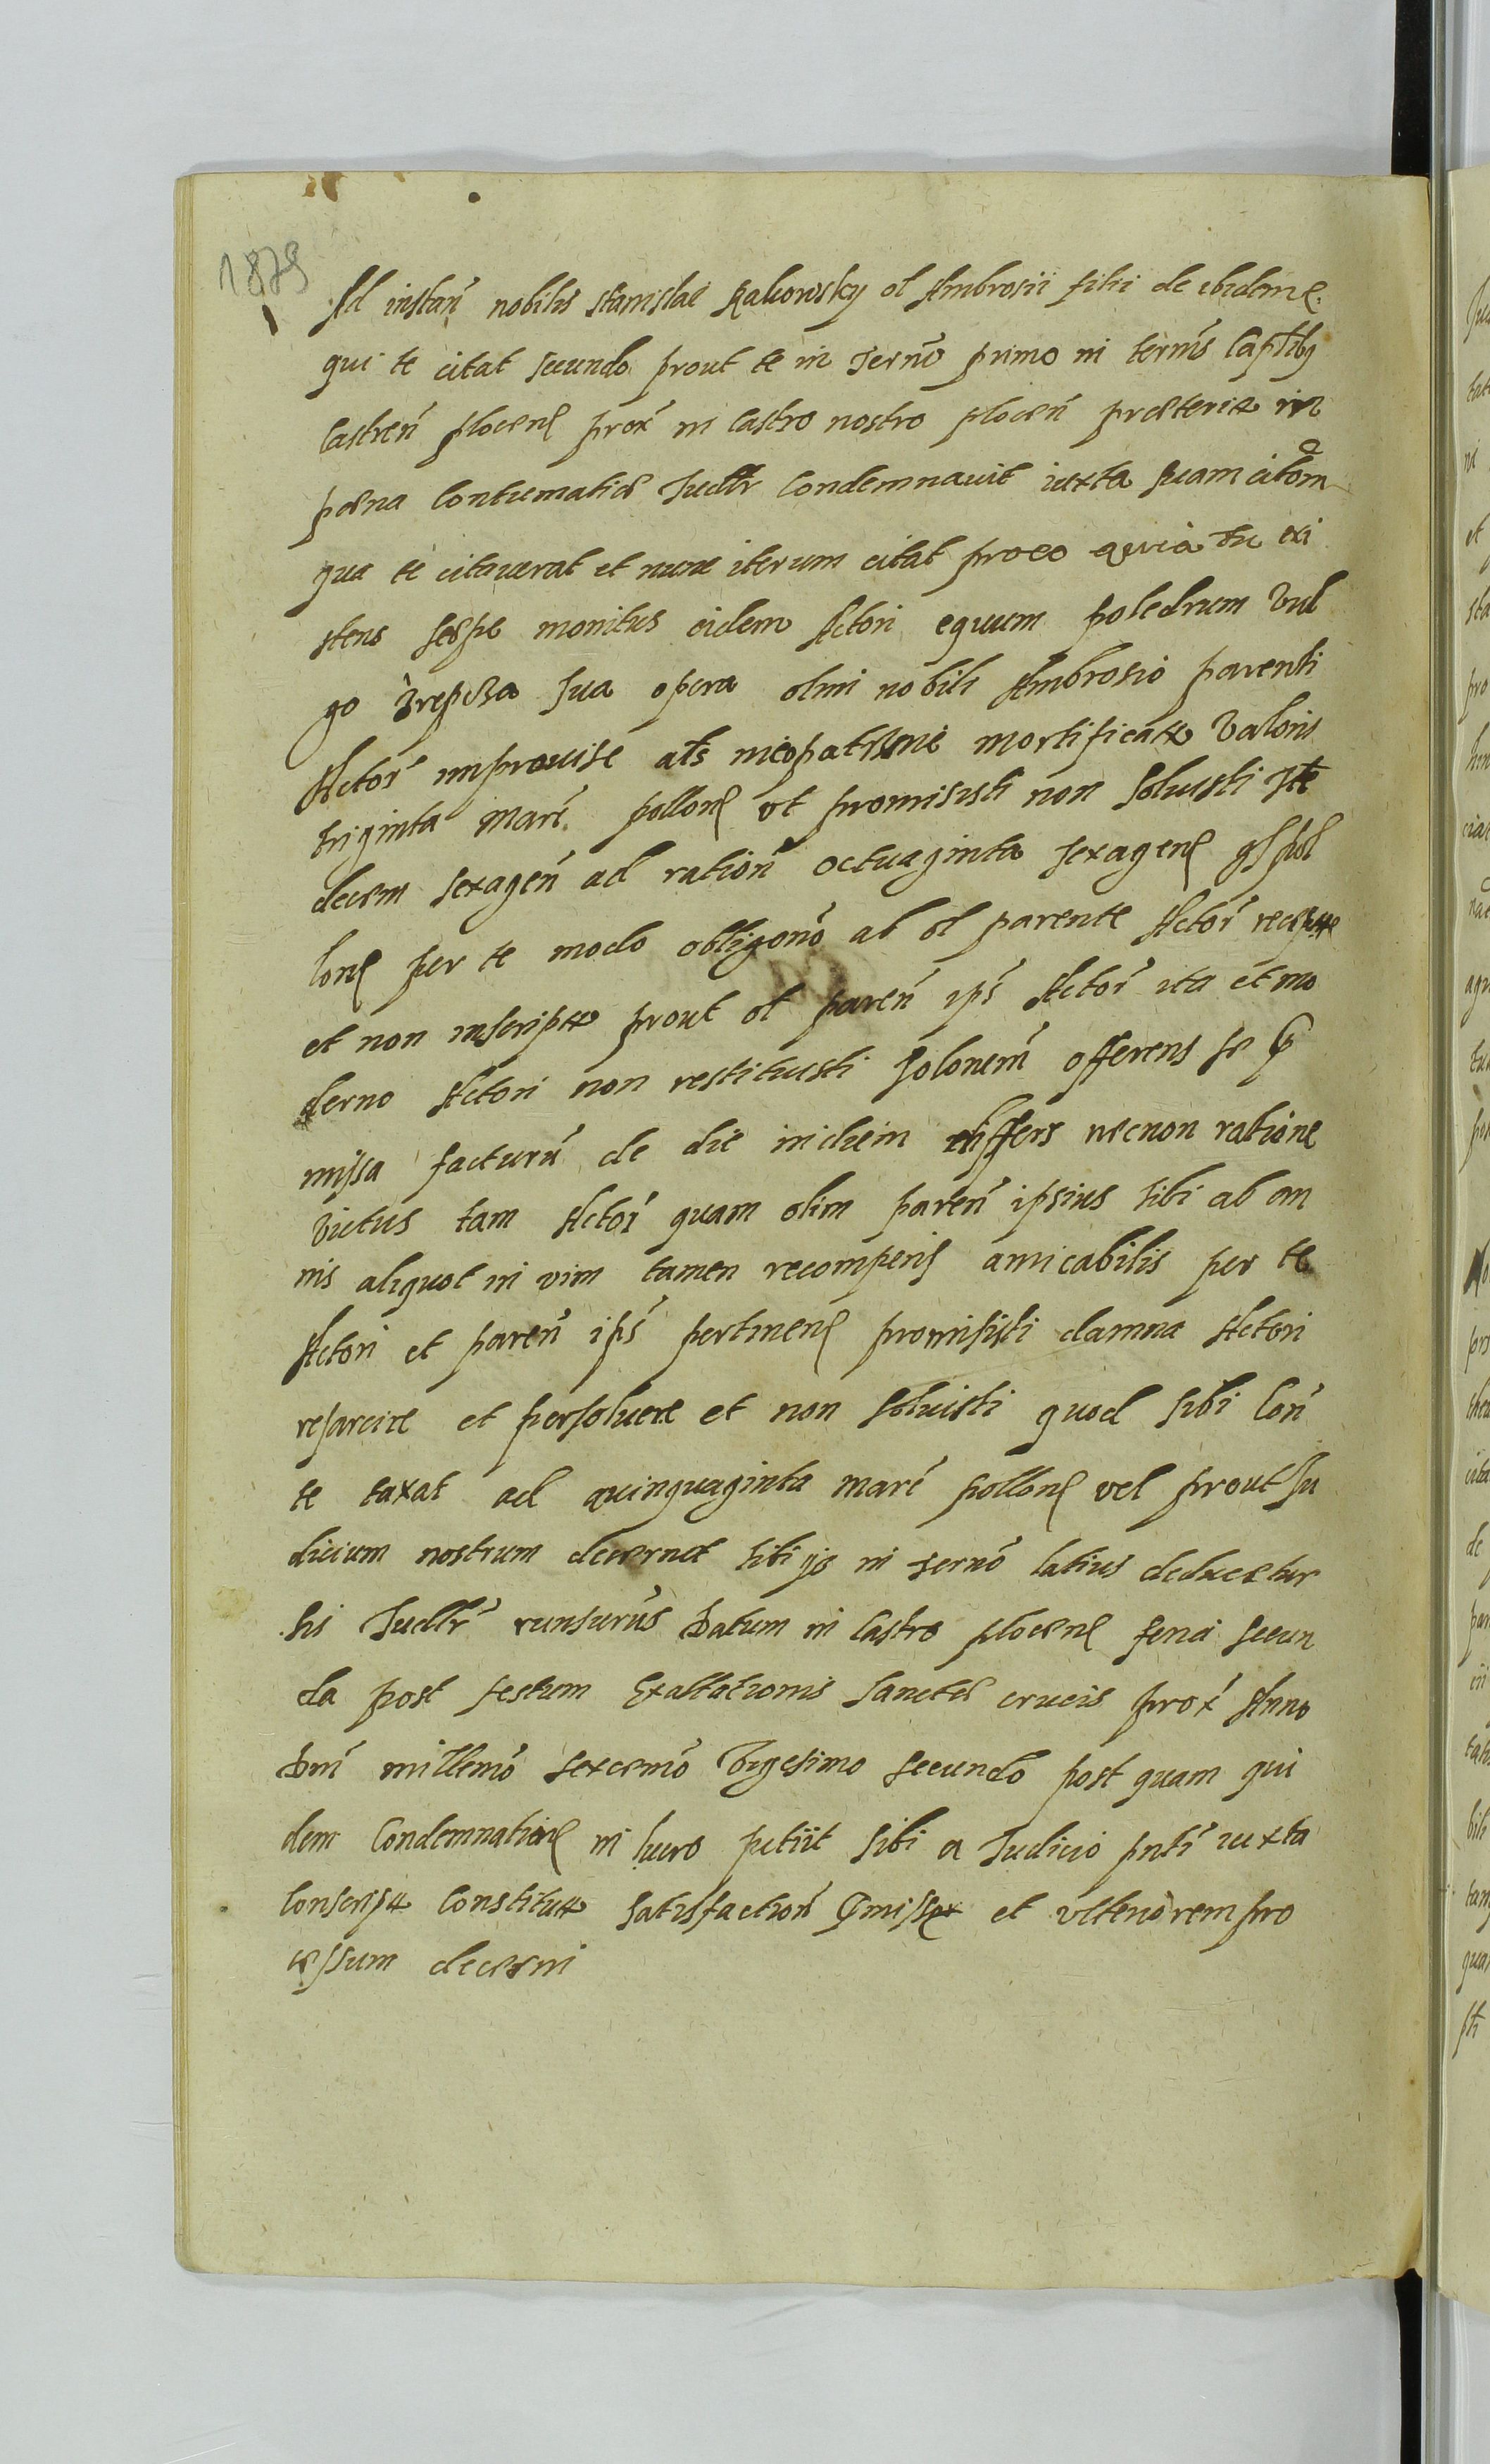 1879
Ad instan̄ nobilis Stanislai Rakowsky ol Ambrosii filii de ibidem
qui te citat secundo prout te in Termō primo in termīs Captlibꝫ
Castren̄ plocen̄ prox̄ in Castro nostro plocen̄ præterit in
pæna Contumatiæ Judlr Condemnauit iuxta quam citōm
qua te citauerat et nunc iterum citat proeo quia tu exi
stens sæpe monitus eidem Actori equum poledrum vul
go sua opera olim nobili Ambrosio parenti
Actoī improuise als mortificat valoris
triginta marc̄ pollon̄ vt promisisti non soluisti Ite
decem sexagen̄ ad ration̄ octuaginta sexagen̄ gs pol
lon̄ per te modo obligonō ab ol parente Actoī recept
et non inscript prout ol paren̄ ips̄ Actoī ita et mo
derno Actori non restituisti solonem̄ offerens se p
missa facturū de die indiem differs necnon ratione
victus tam Actoī quam olim paren̄ ipsius tibi ab an
nis aliquot in vim tamen recompens̄ amicabilis per te
Actori et paren̄ ips̄ pertinen̄ promisisti damna Actori
resarcire et persoluere et non soluisti quod sibi Con̄
te taxat ad quinquaginta marc̄ pollon̄ vel prout Ju
dicium nostrum decernet tibi in termō latius deducetur
sis Judlr̄ runsurūs Datum in Castro plocen̄ feria secun
da post festum Exaltationis sanctæ crucis prox̄ Anno
Dnī millemō sexcemō Vigesimo secundō post quam qui
dem Condemnation̄ in lucro petiit sibi a Judicio pntī iuxta
Conscript Constitut satisfaction̄ pmissor et vlteriorem pro
cessum decerni